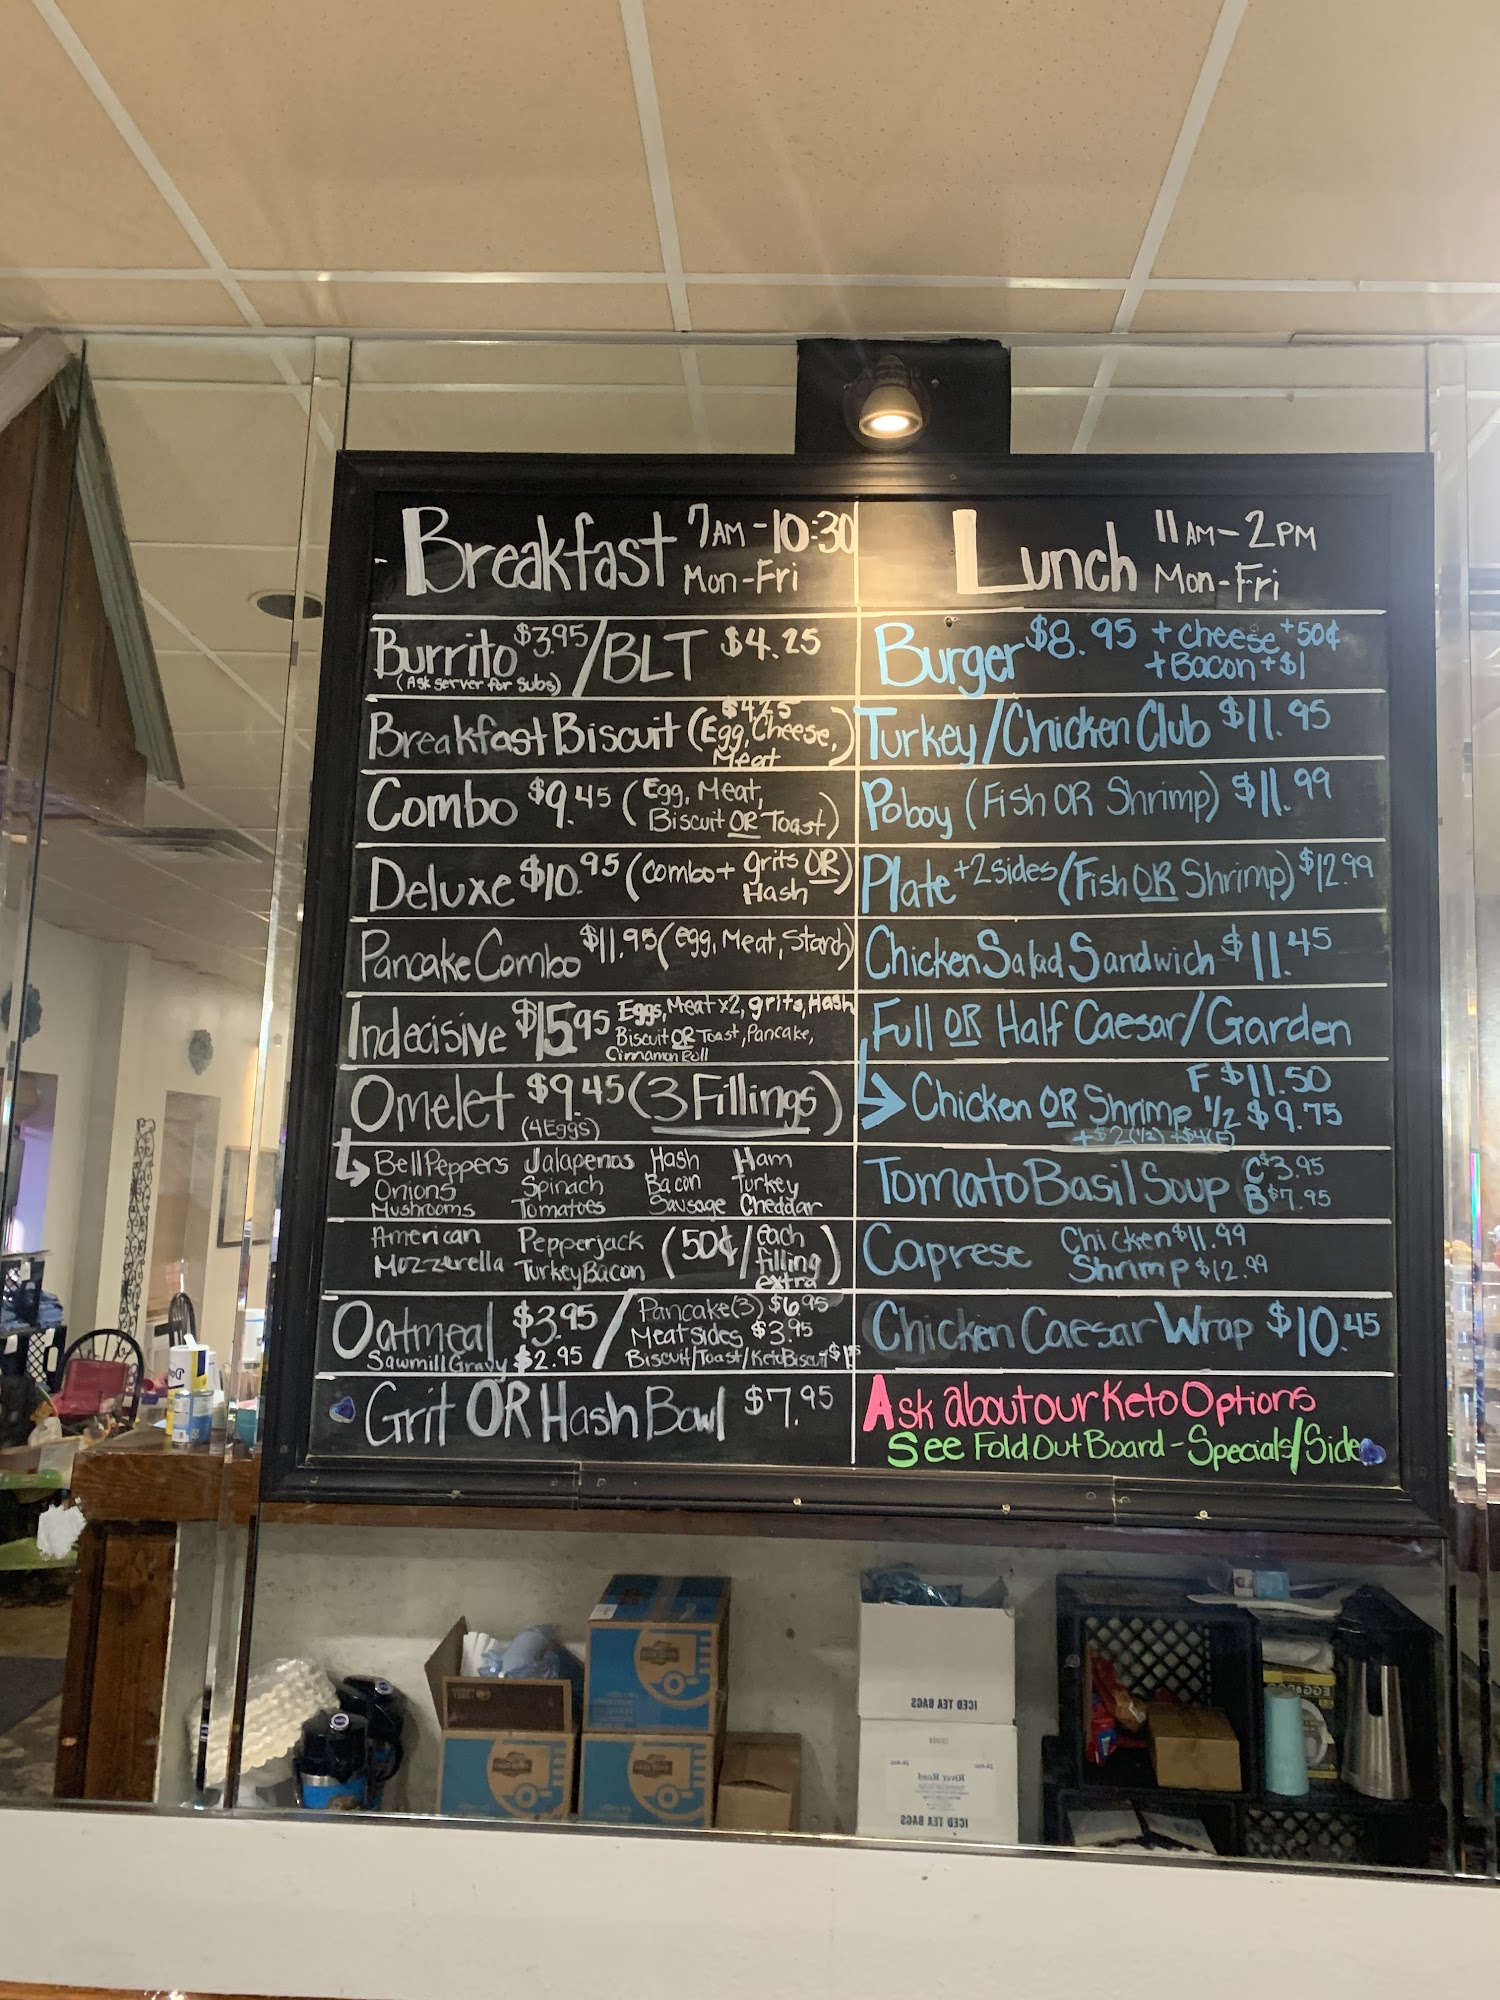 Breakfast 7AM-10:30
Mon-Fri
Burrito $3.95/BLT $4.25
(Ask server for subs)
Breakfast Biscuit ($4.25
Egg, Cheese,
Meat)
Combo $9.45 (Egg, Meat,
Biscuit OR Toast)
Deluxe $10.95 (combo+ grits OR
Hash)
Pancake Combo $11.95 (egg, Meat, Starch)
Indecisive $15.95 Eggs, Meat x2, grits, Hash
Biscuit OR Toast, Pancake,
Cinnamon Roll
Omelet $9.45 (3 Fillings)
(4 Eggs)
Bell Peppers Jalapenos Hash Ham
Onions Spinach Bacon Turkey
Mushrooms Tomatoes Sausage Cheddar
American Pepperjack (50¢/each
Mozzerella Turkey Bacon filling
extra)
Oatmeal $3.95 / Pancake(3) $6.95
Meat sides $3.95
Sawmill Gravy $2.95 Biscuit/Toast/Keto Biscuit
Grit OR Hash Bowl $7.95
Lunch 11AM-2PM
Mon-Fri
Burger $8.95 + cheese +50¢
+ Bacon +$1
Turkey/Chicken Club $11.95
Poboy (Fish OR Shrimp) $11.99
Plate +2 sides (Fish OR Shrimp) $12.99
Chicken Salad Sandwich $11.45
Full OR Half Caesar/Garden
Chicken OR Shrimp F $11.50
1/2 $9.75
+$2(1/2) +$4(F)
Tomato Basil Soup C $3.95
B $7.95
Caprese Chicken $11.99
Shrimp $12.99
Chicken Caesar Wrap $10.45
Ask about our Keto Options
See Fold Out Board - Specials/Side
ICED TEA BAGS
River Road
ICED TEA BAGS